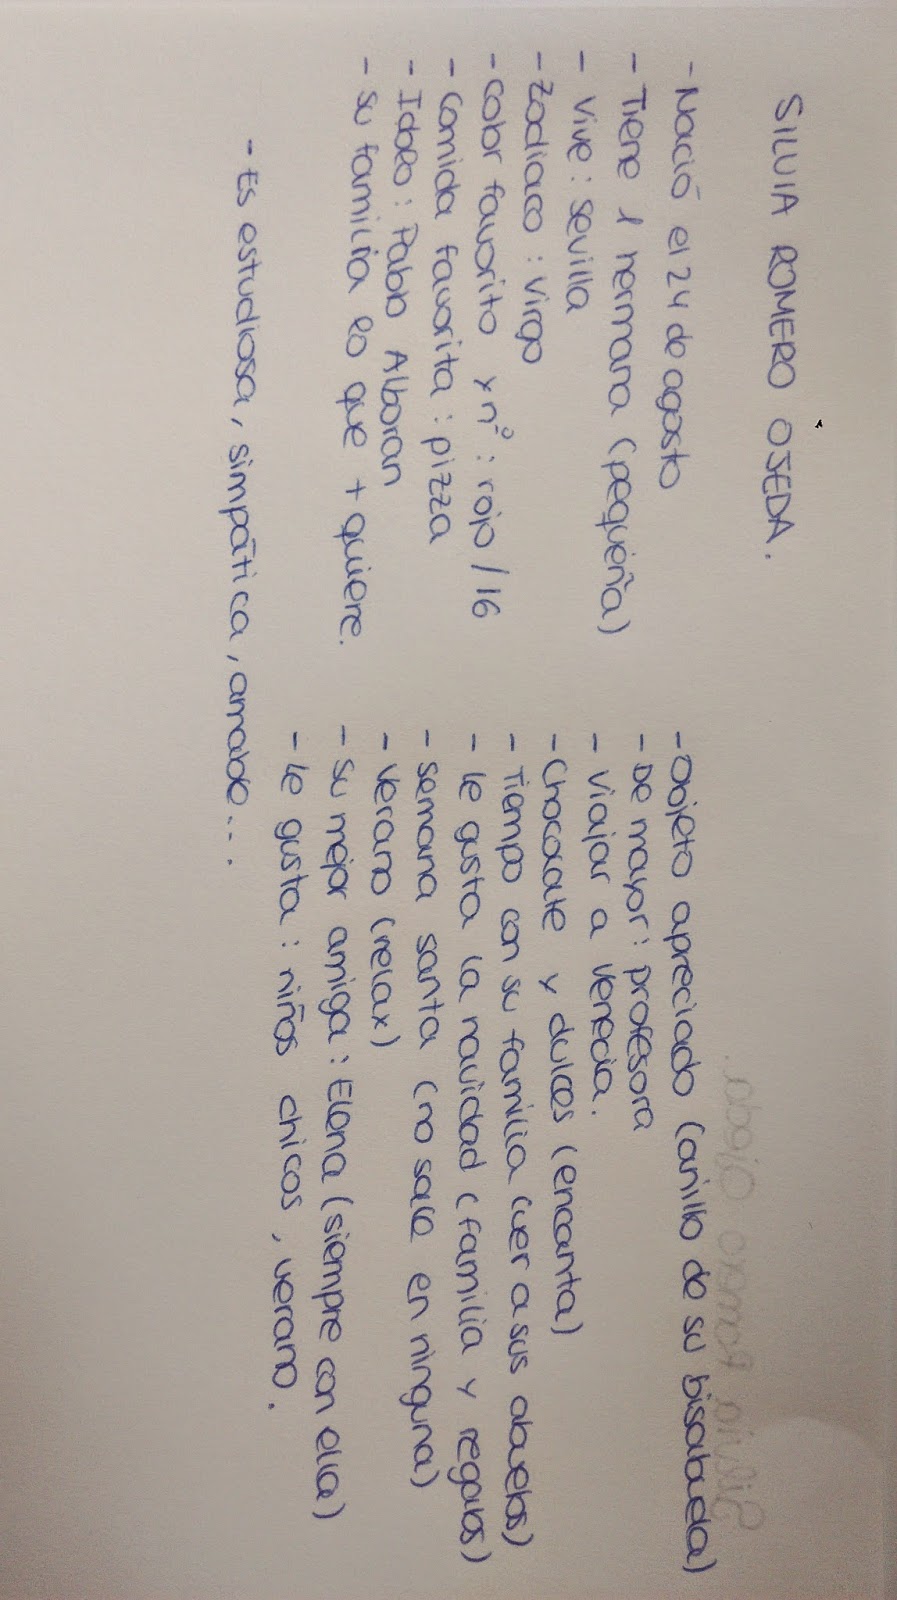 SILVIA ROMERO OJEDA.
- Nació el 24 de agosto
- Tiene 1 hermana (pequeña)
- Vive: Sevilla
- Zodiaco: Virgo
- Color favorito y nº: rojo/16
- Comida favorita: pizza
- Idolo: Pablo Alboran
- Su familia lo que + quiere.
- Es estudiosa, simpática, amable...
- Objeto apreciado (anillo de su bisabuela)
- De mayor: profesora
- Viajar a Venecia.
- Chocolate y dulces (encanta)
- Tiempo con su familia (ver a sus abuelos)
- Le gusta la navidad (familia y regalos)
- Semana santa (no sale en ninguna)
- Verano (relax)
- Su mejor amiga: Elena (siempre con ella)
- Le gusta: niños chicos, verano.
Silvia Romero Ojeda.